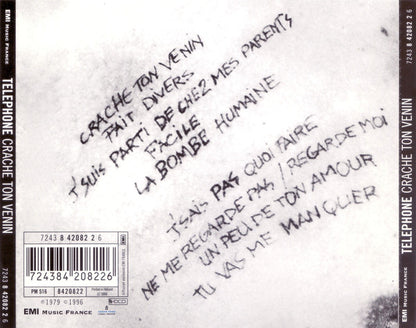 EMI MUSIC FRANCE
TELEPHONE CRACHE TON VENIN
7243 8 42082 2 6
CRACHE TON VENIN
FAIT DIVERS
J'SUIS PARTI DE CHEZ MES PARENTS
FACILE
LA BOMBE HUMAINE
J'SAIS PAS QUOI FAIRE
NE ME REGARDE PAS / REGARDE MOI
UN PEU DE TON AMOUR
TU VAS ME MANQUER
7243 8 42082 2 6
724384 208226
PM 516 8420822
℗1979 ©1996
EMI MUSIC FRANCE
7243 8 42082 2 6
TELEPHONE CRACHE TON VENIN
EMI MUSIC FRANCE